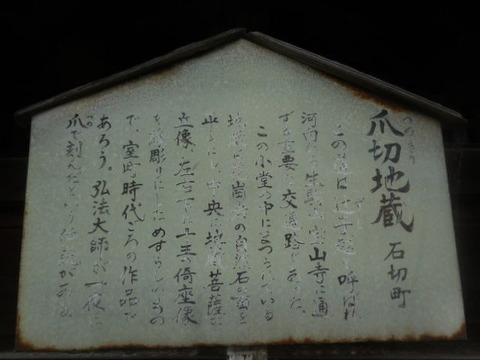 爪切地蔵 石切町
つめきり
この道は 呼ばれ
河内から生駒 宝山寺に通
ずる重要な交通路であった。
この小堂の中にまつられている
地蔵 自然石の面を
中央に地蔵菩薩
立像、左右 下に十王の倚座像
を 彫りにしためずらしいもの
で、室町時代ごろの作品で
あろう。弘法大師が一夜に
爪で刻んだという伝説がある